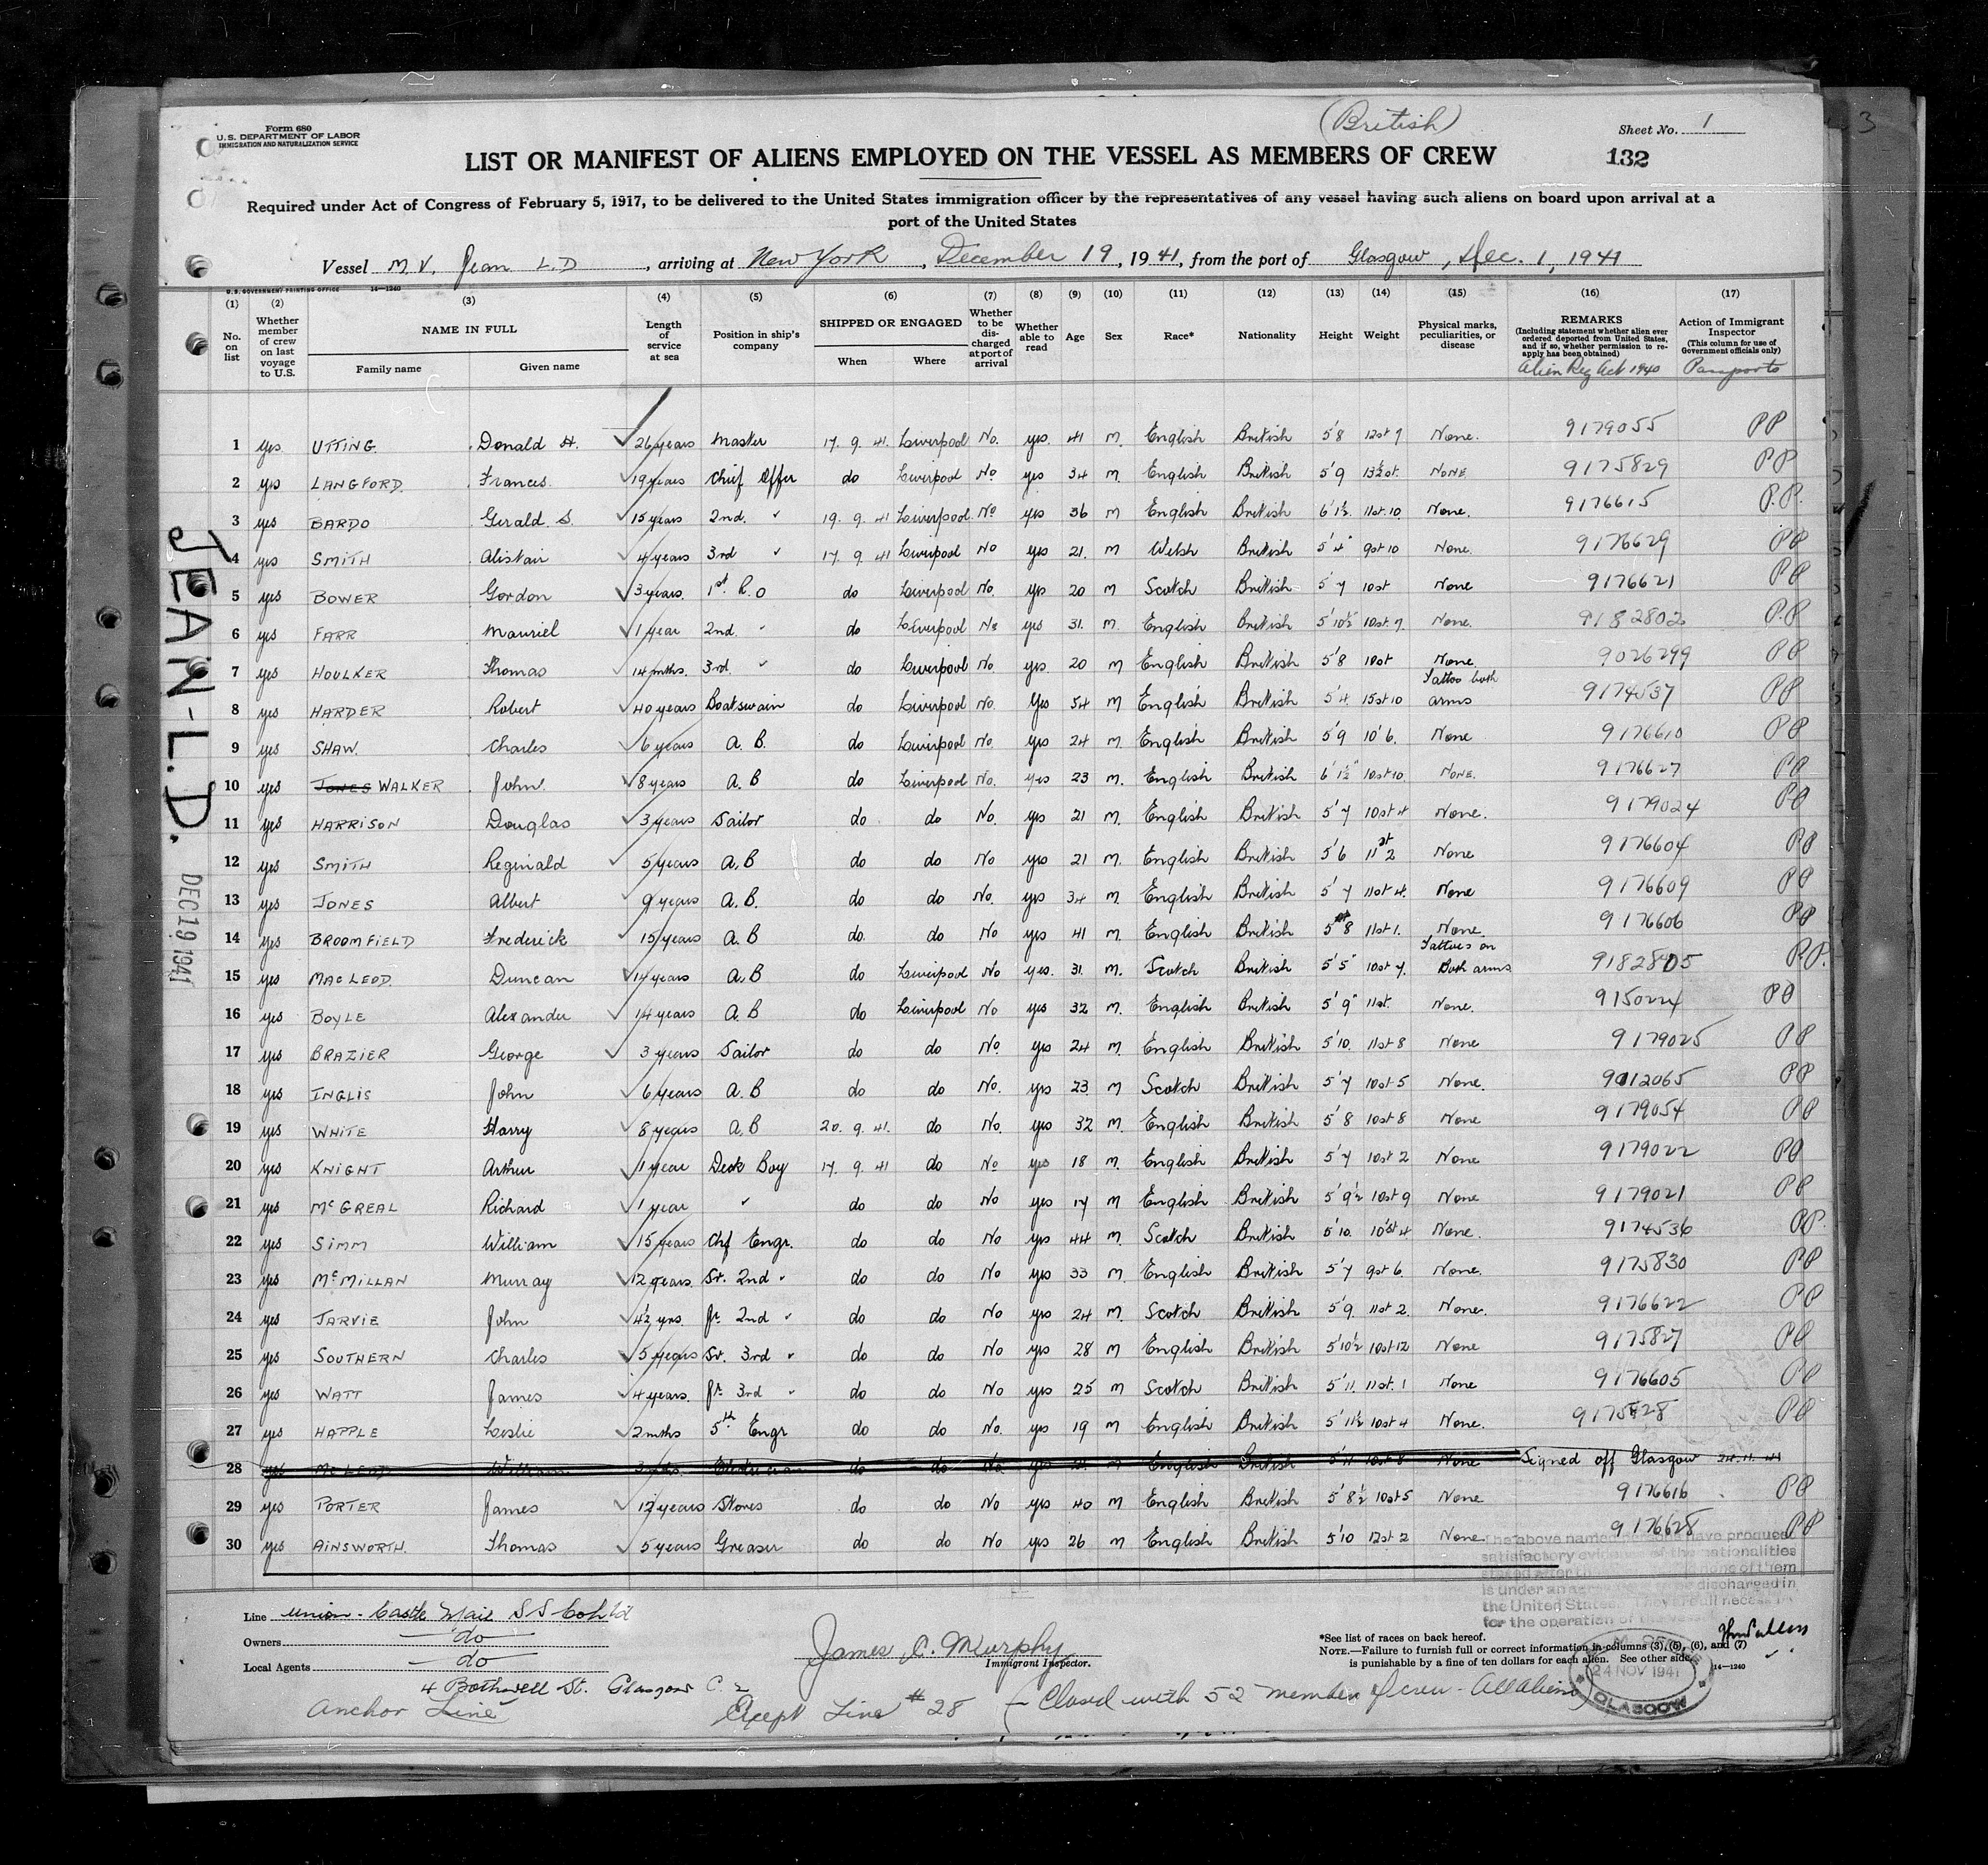 (British)
Form 680
U. S. DEPARTMENT OF LABOR
IMMIGRATION AND NATURALIZATION SERVICE
Sheet No. 1
3
LIST OR MANIFEST OF ALIENS EMPLOYED ON THE VESSEL AS MEMBERS OF CREW
132
Required under Act of Congress of February 5, 1917, to be delivered to the United States immigration officer by the representatives of any vessel having such aliens on board upon arrival at a
port of the United States
Vessel M.V. Jean L.D , arriving at New York , December 19 , 1941, from the port of Glasgow, Dec. 1, 1941
U. S. GOVERNMENT PRINTING OFFICE 14—1240
(1) No. on list
(2) Whether member of crew on last voyage to U.S.
(3) NAME IN FULL Family name Given name
(4) Length of service at sea
(5) Position in ship's company
(6) SHIPPED OR ENGAGED When Where
(7) Whether to be discharged at port of arrival
(8) Whether able to read
(9) Age
(10) Sex
(11) Race*
(12) Nationality
(13) Height
(14) Weight
(15) Physical marks, peculiarities, or disease
(16) REMARKS (Including statement whether alien ever ordered deported from United States, and if so, whether permission to reapply has been obtained) Alien Reg Act 1940
(17) Action of Immigrant Inspector (This column for use of Government officials only) Passports
1 yes UTTING. Donald H. 26 years Master 17. 9. 41. Liverpool No. yes. 41 m. English British 5'8 12st 7 None. 9179055 PP
2 yes LANGFORD. Frances. 19 years Chief Offer do Liverpool No yes 34 m. English British 5'9 13½st. NONE 9175829 PP
3 yes BARDO Gerald S. 15 years 2nd. " 19. 9. 41 Liverpool No yes 36 m English British 6'1½. 11st.10. None. 9176615 P.P.
4 yes SMITH Alistair 4 years 3rd " 17. 9. 41 Liverpool No yes 21. m Welsh British 5'4" 9st 10 None. 9176629 PP
5 yes BOWER Gordon 3 years. 1st R.O do Liverpool No. yes 20 m Scotch British 5'7 10st None 9176621 PP
6 yes FARR Mauriel 1 year 2nd. " do Liverpool No yes 31. m. English British 5'10½ 10st. 7. None. 9182802 P.P
7 yes HOULKER Thomas 14 mths. 3rd. " do Liverpool No. yes. 20 m English British 5'8 10st None 9026299 PP
8 yes HARDER Robert 40 years Boatswain do Liverpool No. yes 54 m English British 5'4. 15st 10 Tattoo both arms 9174537 PP
9 yes SHAW. Charles 6 years A. B. do Liverpool No. yes 24 m. English British 5'9 10'6. None 9176610 PP
10 yes JONES WALKER John. 8 years A. B do Liverpool No. yes 23 m. English British 6'1½" 10st 10. NONE. 9176627 PP
11 yes HARRISON Douglas 3 years Sailor do do No. yes 21 m. English British 5'7 10st 4 None. 9179024 PP
12 yes SMITH Reginald 5 years A.B do do No yes 21 m. English British 5'6 11st 2 None 9176604 PP
13 yes JONES Albert 9 years A.B. do do No. yes 34 m. English British 5'7 11st 4. None 9176609 PP
14 yes BROOMFIELD Frederick 15 years A.B do. do No yes 41 m. English British 5'8 11st 1. None. 9176606 PP
15 yes MACLEOD. Duncan 14 years A.B do Liverpool No yes. 31. m. Scotch British 5'5" 10st 7. Tattoes on Both arms 9182805 P.P.
16 yes BOYLE Alexander 14 years A. B do Liverpool No yes 32 m. English British 5'9" 11st. None. 9150224 PP
17 yes BRAZIER George 3 years Sailor do do No. yes 24 m. English British 5'10. 11st 8 None 9179025 PP
18 yes INGLIS John 6 years A. B do do No. yes 23 m Scotch British 5'7 10st 5 None. 9012065 PP
19 yes WHITE Harry 8 years A.B 20. 9. 41. do No. yes 32 m. English British 5'8 10st 8 None 9179054 PP
20 yes KNIGHT Arthur 1 year Deck Boy 17. 9. 41 do No yes 18 m. English British 5'7 10st 2 None 9179022 PP
21 yes McGREAL Richard 1 year " do do No yes 17 m English British 5'9½ 10st 9 None 9179021 PP
22 yes SIMM William 15 years Chf Engr. do do No yes 44 m. Scotch British 5'10. 10st 4 None. 9174536 PP.
23 yes McMILLAN Murray 12 years. Sr. 2nd " do do No yes 33 m. English British 5'7 9st 6. None. 9175830 PP
24 yes JARVIE John 4½ yrs. Jr. 2nd " do do No yes 24 m. Scotch British 5'9. 11st 2. None. 9176622 PP
25 yes SOUTHERN Charles 5 years Sr. 3rd " do do No yes 28 m English British 5'10½ 10st 12 None 9175827 PP
26 yes WATT James 4 years. Jr. 3rd " do do No yes 25 m Scotch British 5'11. 11st. 1 None 9176605 PP
27 yes HAPPLE Leslie 2 mths 5th Engr do do No. yes 19 m English British 5'11½ 10st 4 None. 9175828 PP
28 yes McLEOD William Electrician do do No yes m English British 5'11 10st 8 None Signed off Glasgow 24.11.41
29 yes PORTER James 12 years Stores do do No yes 40 m English British 5'8½ 10st 5 None 9176616 PP
30 yes AINSWORTH. Thomas 5 years Greaser do do No yes 26 m English British 5'10 12st 2 None 9176628 PP
JEAN-L.D.
DEC 19 1941
The above named have produced
satisfactory evidence of the nationalities
stated after none of them
is under an discharged in
the United States. They are all necessary
for the operation of the vessel
Line Union-Castle Mail S S Co Ltd
Owners do
Local Agents do
4 Bothwell St. Glasgow C. 2
Anchor Line
James C. Murphy
Immigrant Inspector.
Except Line #28 – Closed with 52 members of crew - All Aliens
*See list of races on back hereof.
NOTE.—Failure to furnish full or correct information in columns (3), (5), (6), and (7)
is punishable by a fine of ten dollars for each alien. See other side.
14—1240
24 NOV 1941
GLASGOW